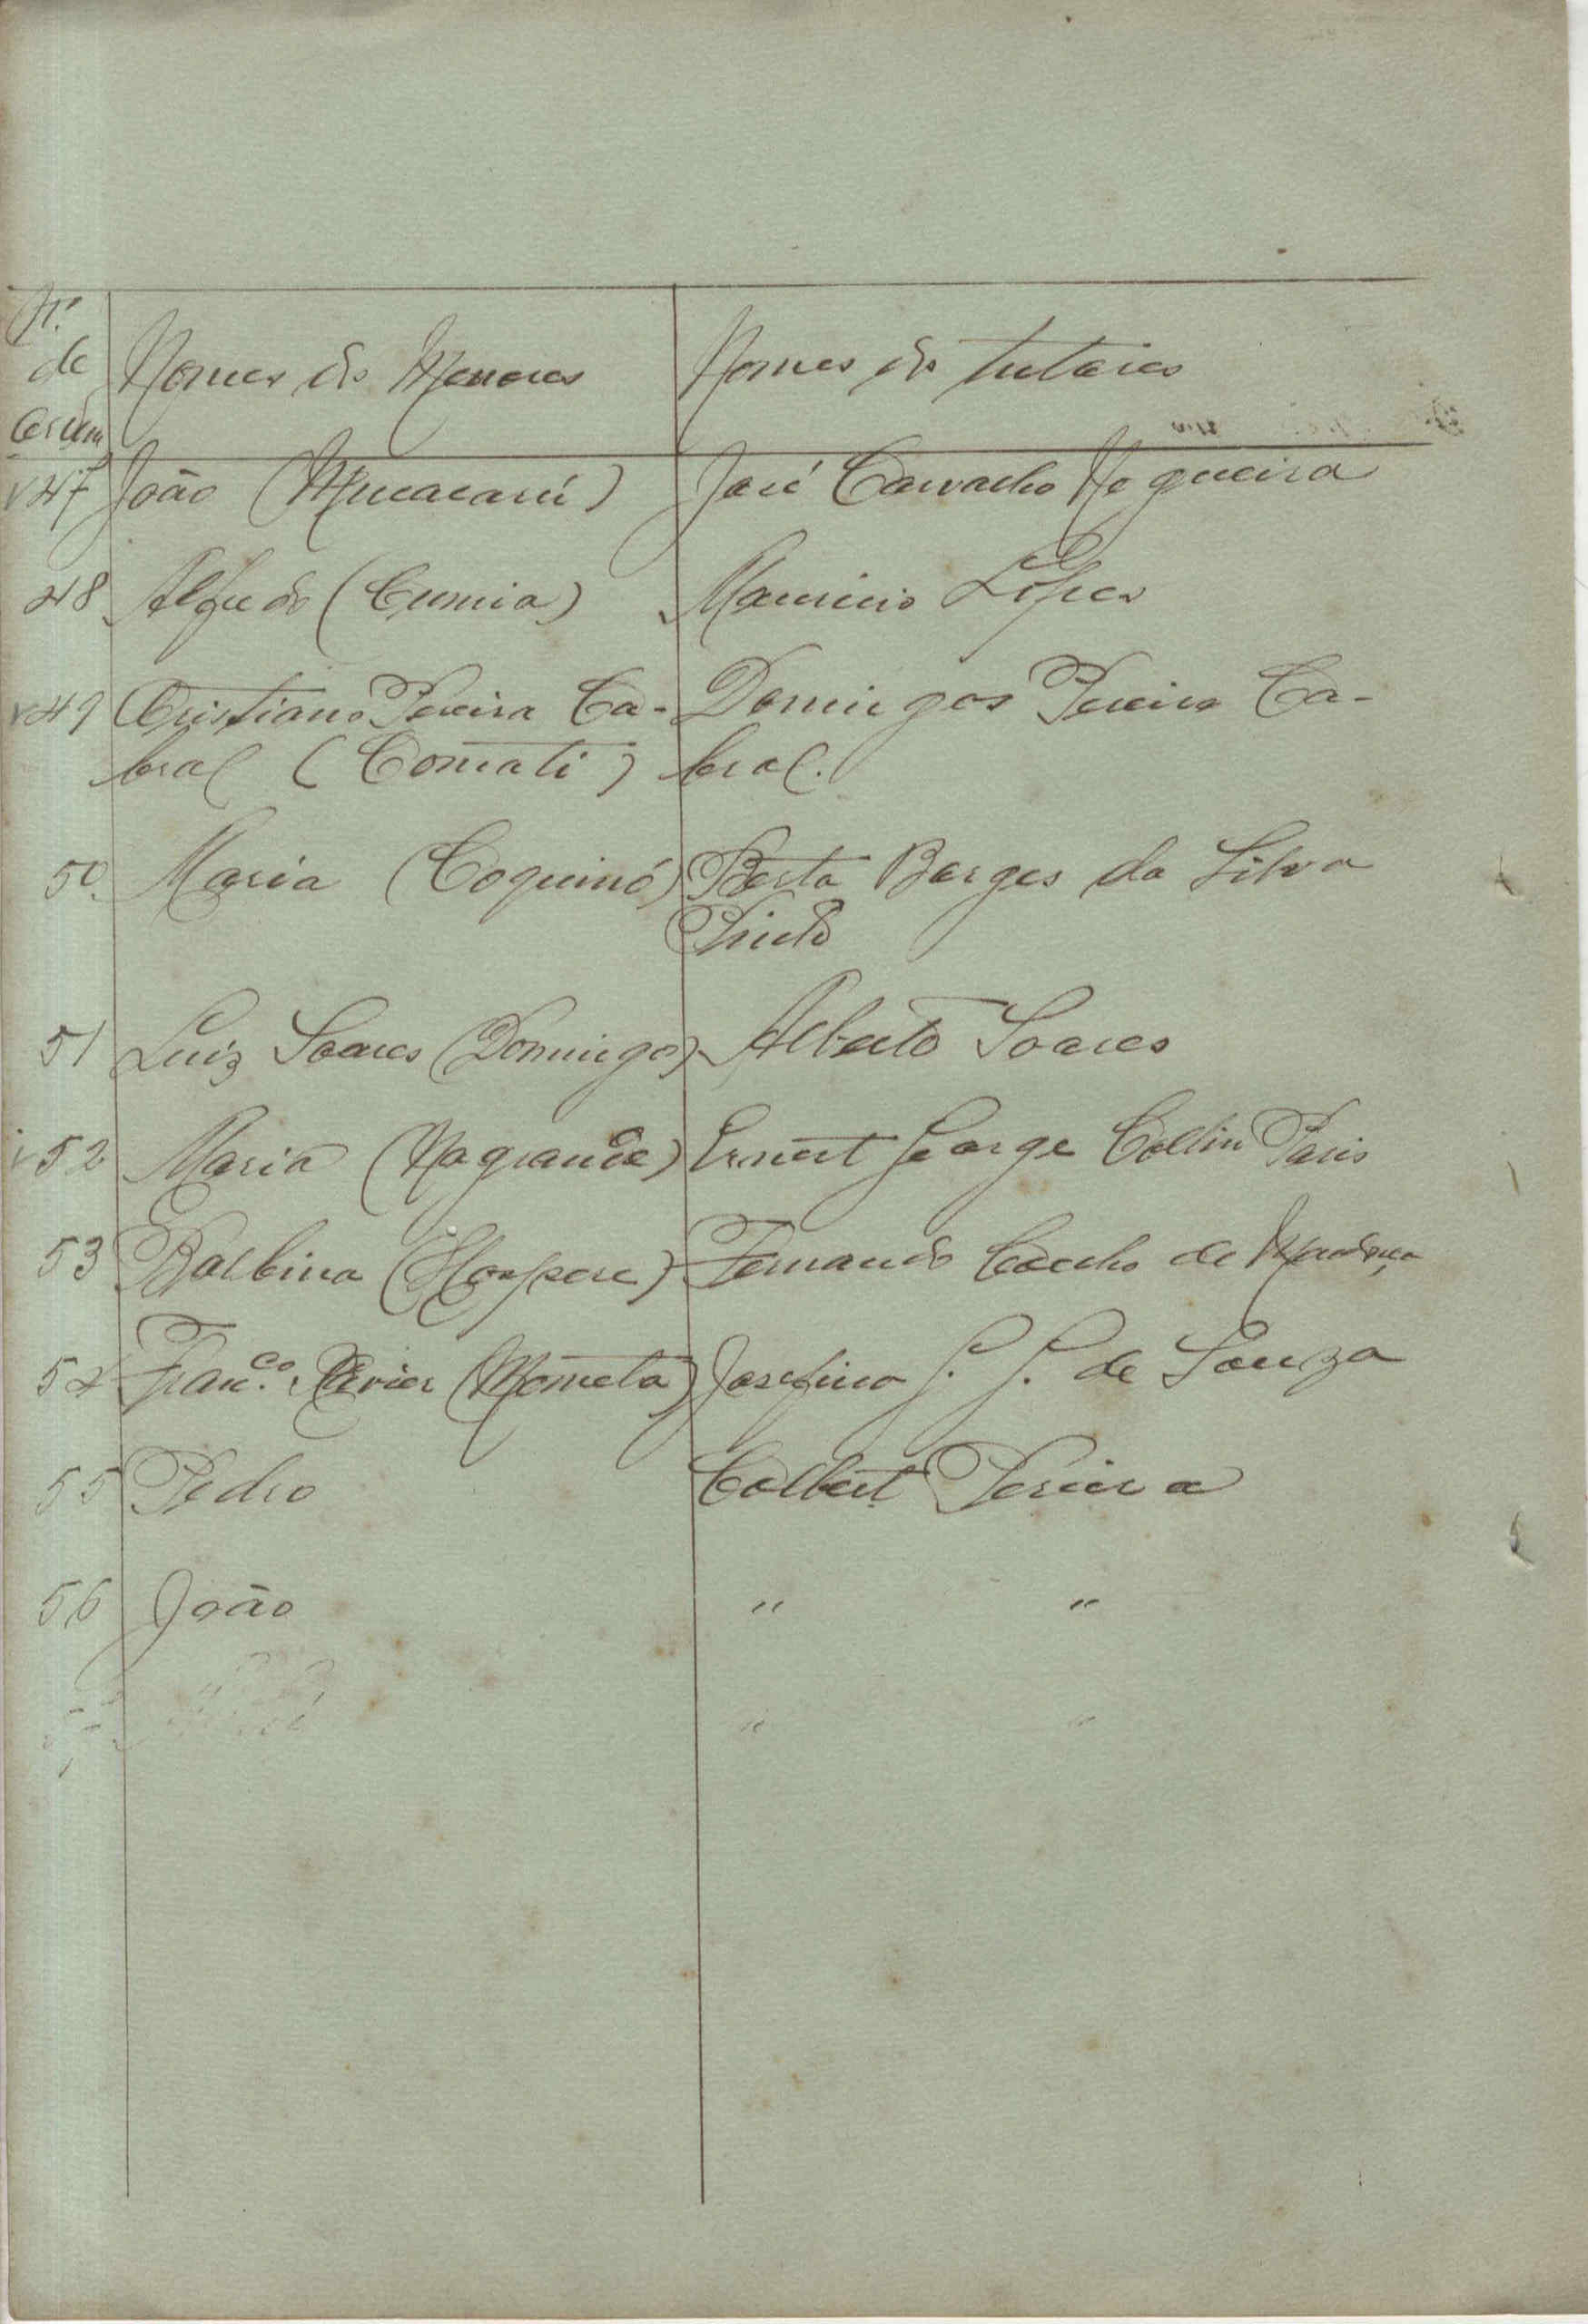 Nº
de
Ordem
Nomes dos Menores Nomes dos tutores
v 47 João (Mucacarú) José Carvalho Nogueira
48 Alfredo (Cumia) Mauricio Lopes
v 49 Cristiano Pereira Ca- Domingos Pereira Ca-
bral (Comati) bral.
50 Maria (Coquinó) Berta Borges da Silva
Pinto
51 Luiz Soares (Domingo) Alberto Soares
v 52 Maria (Nagrande) Ernest George Collin Paris
53 Balbina (Hospere) Fernando Coelho de Mendonça
54 Fran.co Xavier (Mometa) Josefina de Souza
55 Pedro Colbert Pereira
56 João " "
" "